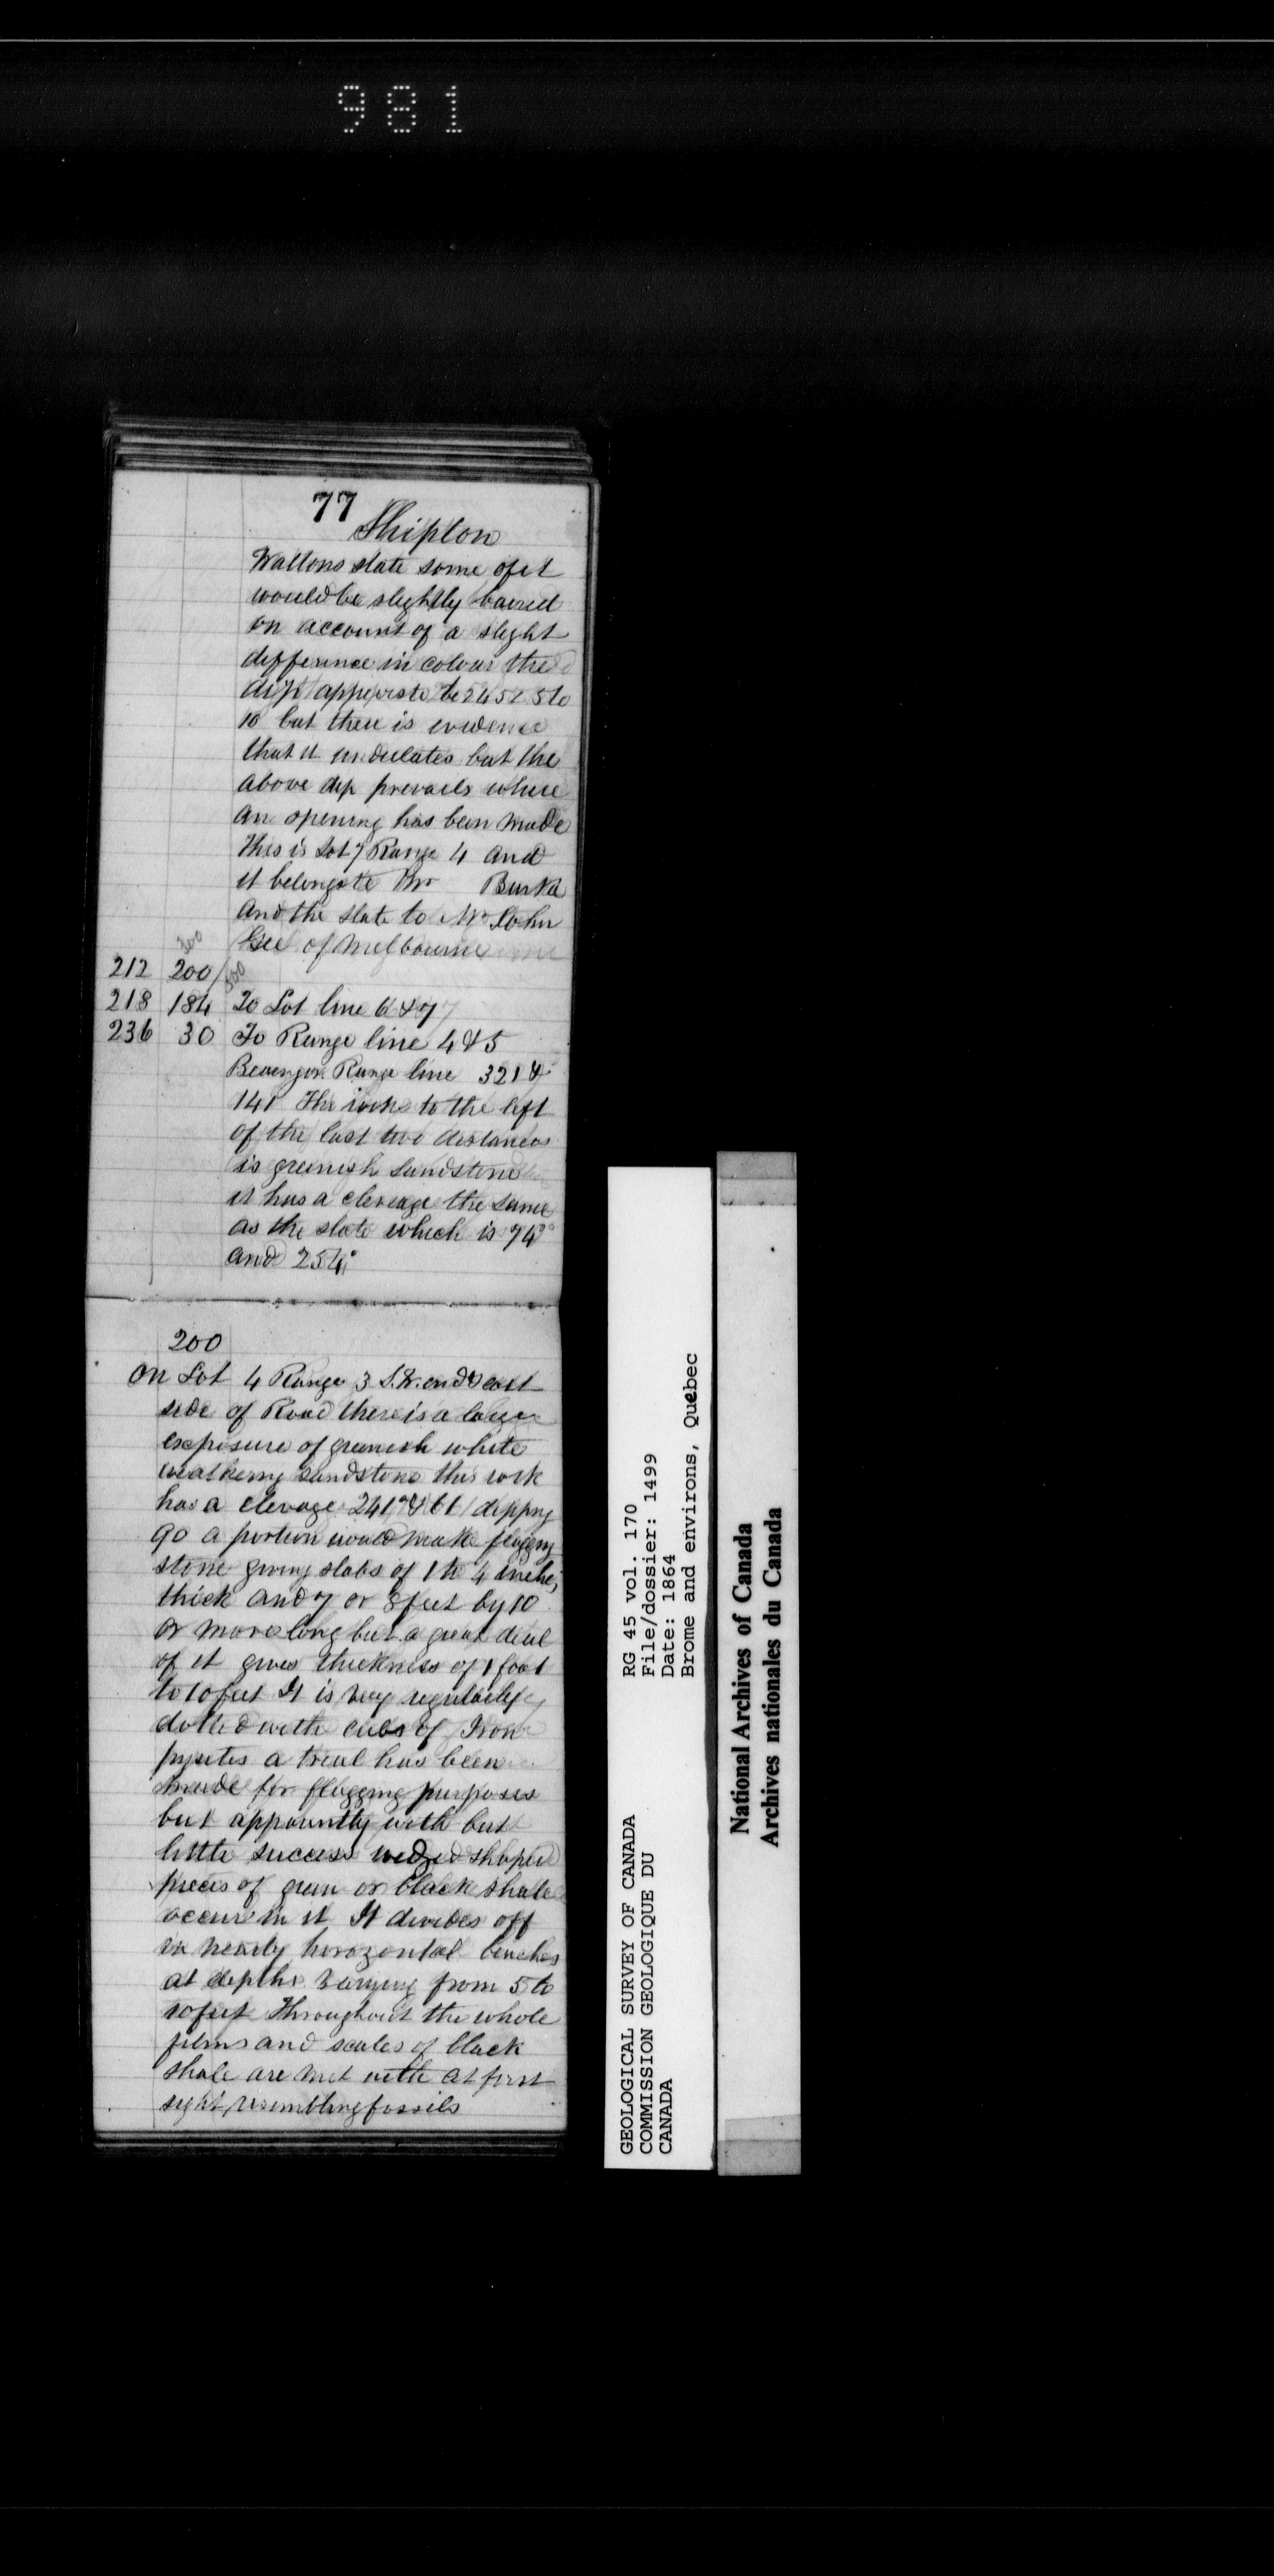 981
77
Shipton
Waltons slate some of it
would be slightly barred
on account of a slight
difference in colour the
dip appears to be 245 < 5 to
10 but there is evidence
that it undulates but the
above dip prevails where
an opening has been made
This is Lot 7 Range 4 and
it belongs to Mr Burke
and the slate to Mr John
Gee of Melbourne
300
212 200/300
218 184 To Lot line 6 & 7
236 30 To Range line 4 & 5
Bearing on Range line 321 &
141 The rocks to the left
of the last two distances
is greenish sandstone
it has a clevage the same
as the slate which is 74°
and 254°
200
On Lot 4 Range 3 S.W. end & east
side of Road there is a large
exposure of greenish white
weathering sandstone this rock
has a clevage 241° & 61 dipping
90 a portion would make flagging
stone giving slabs of 1 to 4 inches
thick and 7 or 8 feet by 10
or more long but a great deal
of it gives thickness of 1 foot
to 10 feet It is very regularly
dotted with cubs of Iron
pyrites a trial has been
made for flagging purposes
but apparently with but
little success wedged shaped
pieces of green or black shale
occurs in it It divides off
in nearly horozontal benches
at depths varying from 5 to
10 feet Throughout the whole
films and scales of black
shale are met with at first
sight resembling fossils
GEOLOGICAL SURVEY OF CANADA
COMMISSION GEOLOGIQUE DU
CANADA
RG 45 vol. 170
File/dossier: 1499
Date: 1864
Brome and environs, Quebec
National Archives of Canada
Archives nationales du Canada